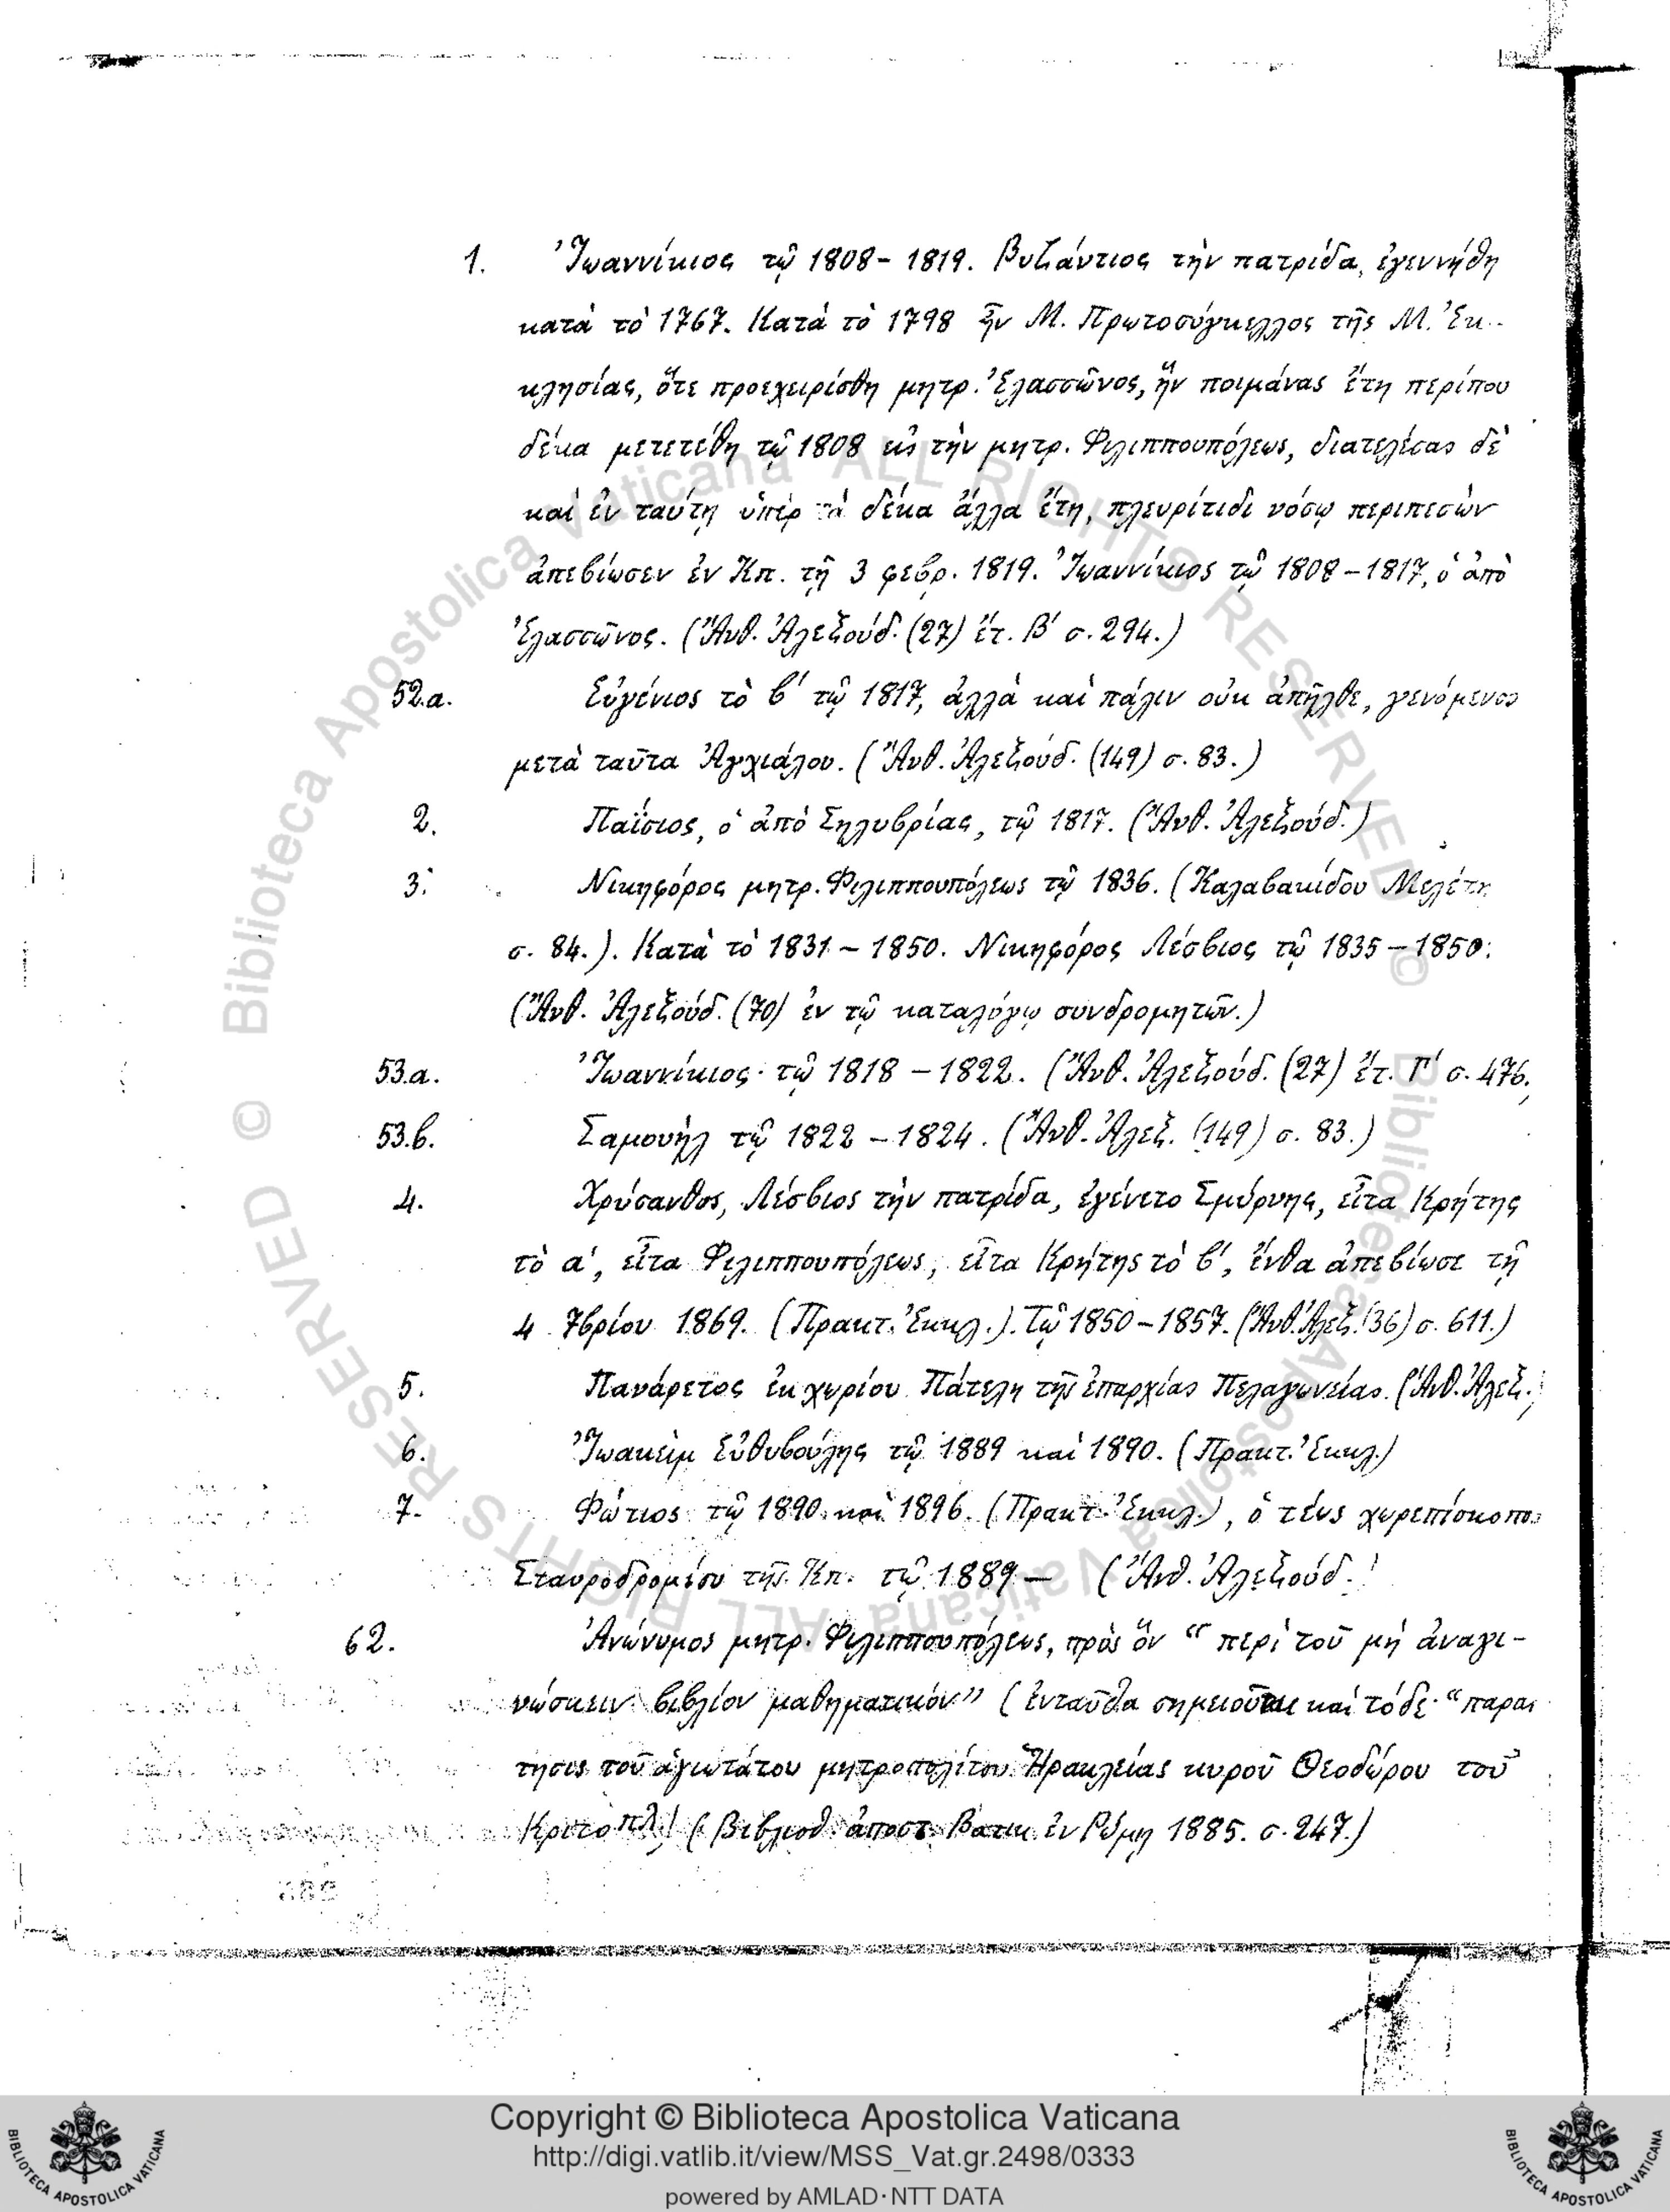 1. Ἰωαννίκιος τῷ 1808 - 1819. Βυζάντιος τὴν πατρίδα, ἐγεννήθη
κατὰ τὸ 1767. Κατὰ τὸ 1798 ἦν Μ. Πρωτοσύγκελλος τῆς Μ. Ἐκ-
κλησίας, ὅτε προεχειρίσθη μητρ. Ἐλασσῶνος, ἣν ποιμάνας ἔτη περίπου
δέκα μετετέθη τῷ 1808 εἰς τὴν μητρ. Φιλιππουπόλεως, διατελέσας δὲ
καὶ ἐν ταύτῃ ὑπὲρ τὰ δέκα ἄλλα ἔτη, πλευρίτιδι νόσῳ περιπεσὼν
ἀπεβίωσεν ἐν Κπ. τῇ 3 φεβρ. 1819. Ἰωαννίκιος τῷ 1808 - 1817, ὁ ἀπὸ
Ἐλασσῶνος. (Ἄνθ. Ἀλεξούδ. (27) ἔτ. Β' σ. 294.)
52.α. Εὐγένιος τὸ β' τῷ 1817, ἀλλὰ καὶ πάλιν οὐκ ἀπῆλθε, γενόμενος
μετὰ ταῦτα Ἀγχιάλου. (Ἄνθ. Ἀλεξούδ. (149) σ. 83.)
2. Παΐσιος, ὁ ἀπὸ Σηλυβρίας, τῷ 1817. (Ἄνθ. Ἀλεξούδ.)
3. Νικηφόρος μητρ. Φιλιππουπόλεως τῷ 1836. (Καλαβακίδου Μελέτη
σ. 84.). Κατὰ τὸ 1831 - 1850. Νικηφόρος Λέσβιος τῷ 1835 - 1850.
(Ἄνθ. Ἀλεξούδ. (70) ἐν τῷ καταλόγῳ συνδρομητῶν.)
53.α. Ἰωαννίκιος τῷ 1818 - 1822. (Ἄνθ. Ἀλεξούδ. (27) ἔτ. Γ' σ. 476.
53.β. Σαμουὴλ τῷ 1822 - 1824. (Ἄνθ. Ἀλεξ. (149) σ. 83.)
4. Χρύσανθος, Λέσβιος τὴν πατρίδα, ἐγένετο Σμύρνης, εἶτα Κρήτης
τὸ α', εἶτα Φιλιππουπόλεως, εἶτα Κρήτης τὸ β', ἔνθα ἀπεβίωσε τῇ
4 7βρίου 1869. (Πρακτ. Ἐκκλ.). Τῷ 1850 - 1857. (Ἄνθ. Ἀλεξ. (36) σ. 611.)
5. Πανάρετος ἐκ χωρίου Πάτελη τῆς ἐπαρχίας Πελαγωνείας. (Ἄνθ. Ἀλεξ.)
6. Ἰωακεὶμ Εὐθυβούλης τῷ 1889 καὶ 1890. (Πρακτ. Ἐκκλ.)
7. Φώτιος τῷ 1890 καὶ 1896. (Πρακτ. Ἐκκλ.), ὁ τέως χωρεπίσκοπος
Σταυροδρομίου τῆς Κπ. τῷ 1889 - (Ἄνθ. Ἀλεξούδ.)
62. Ἀνώνυμος μητρ. Φιλιππουπόλεως, πρὸς ὃν "περὶ τοῦ μὴ ἀναγι-
νώσκειν βιβλίον μαθηματικόν" (ἐνταῦθα σημειοῦται καὶ τόδε· "παραι
τησις τοῦ ἁγιωτάτου μητροπολίτου Ἡρακλείας κυροῦ Θεοδώρου τοῦ
Κριτοπλ) (Βιβλιοθ. ἀποστ. Βατικ. ἐν Ρώμῃ 1885. σ. 247.)
© Biblioteca Apostolica Vaticana ALL RIGHTS RESERVED
© Biblioteca Apostolica Vaticana ALL RIGHTS RESERVED
Copyright © Biblioteca Apostolica Vaticana
http://digi.vatlib.it/view/MSS_Vat.gr.2498/0333
powered by AMLAD·NTT DATA
BIBLIOTECA APOSTOLICA VATICANA
BIBLIOTECA APOSTOLICA VATICANA